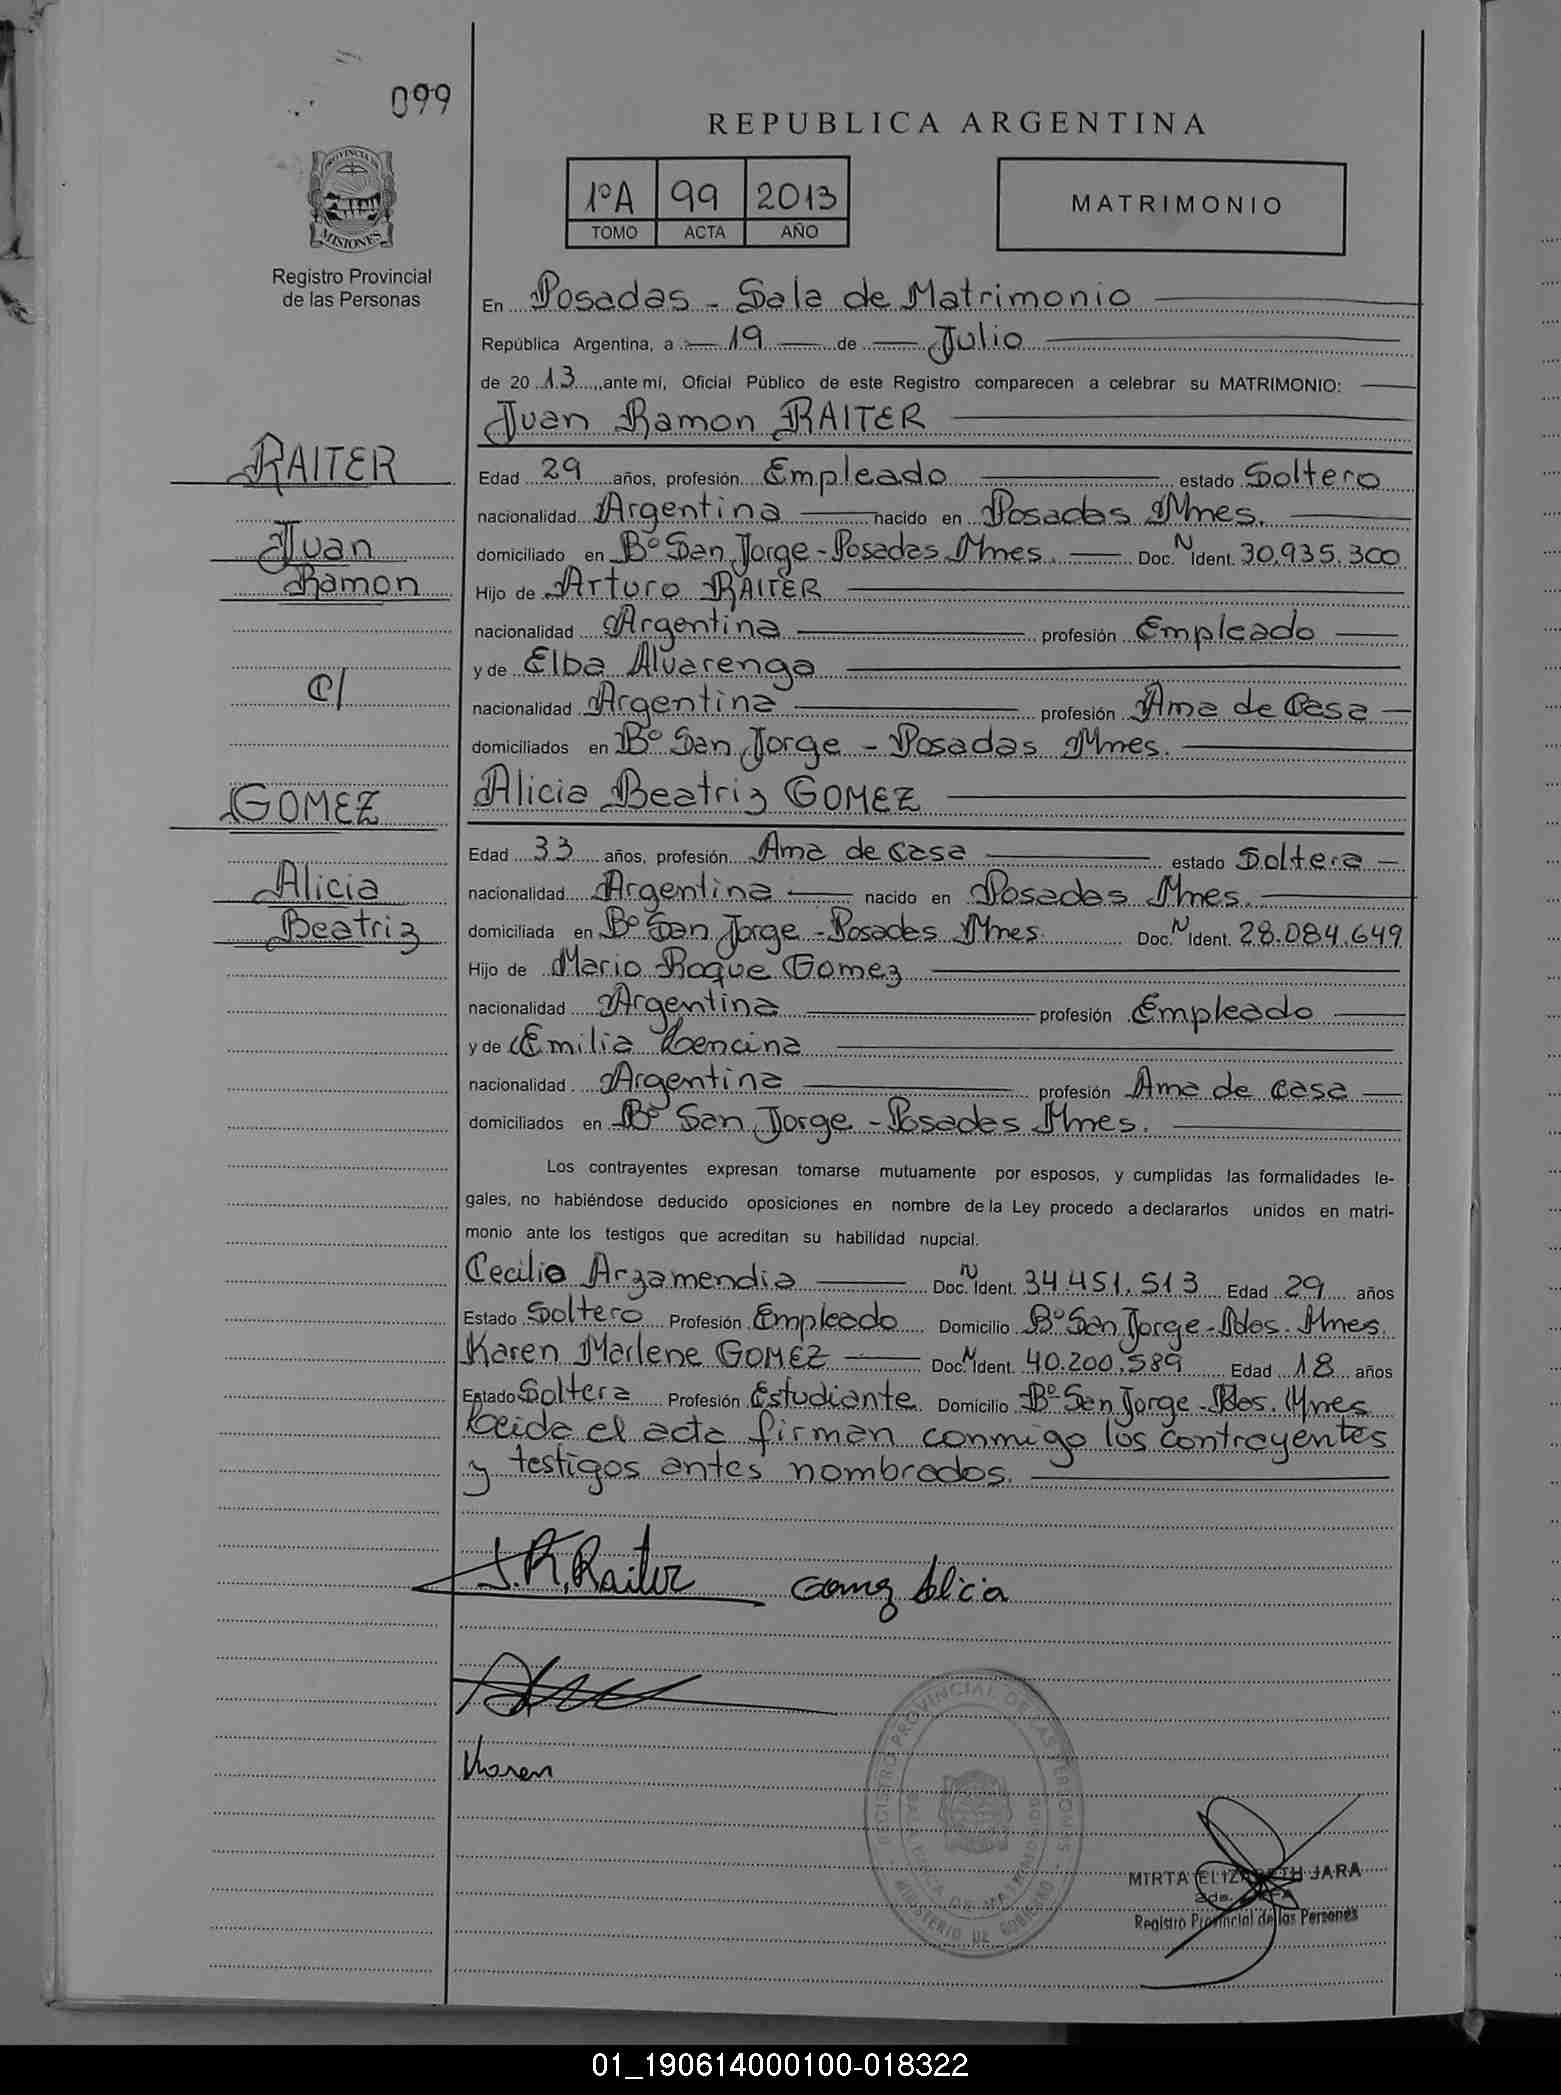 099
REPUBLICA ARGENTINA
1ºA 99 2013
TOMO ACTA AÑO
MATRIMONIO
PROVINCIA DE
MISIONES
Registro Provincial
de las Personas
En Posadas - Sala de Matrimonio
República Argentina, a 19 de Julio
de 2013, ante mí, Oficial Público de este Registro comparecen a celebrar su MATRIMONIO:
Juan Ramon RAITER
RAITER
Juan
Ramon
C/
GOMEZ
Alicia
Beatriz
Edad 29 años, profesión Empleado estado Soltero
nacionalidad Argentina nacido en Posadas Mnes.
domiciliado en Bº San Jorge - Posadas Mnes. Doc. N Ident. 30.935.300
Hijo de Arturo RAITER
nacionalidad Argentina profesión Empleado
y de Elba Alvarenga
nacionalidad Argentina profesión Ama de Casa
domiciliados en Bº San Jorge - Posadas Mnes.
Alicia Beatriz GOMEZ
Edad 33 años, profesión Ama de casa estado Soltera
nacionalidad Argentina nacido en Posadas Mnes.
domiciliada en Bº San Jorge - Posadas Mnes. Doc. N Ident. 28.084.649
Hijo de Mario Roque Gomez
nacionalidad Argentina profesión Empleado
y de Emilia Lencina
nacionalidad Argentina profesión Ama de casa
domiciliados en Bº San Jorge - Posadas Mnes.
Los contrayentes expresan tomarse mutuamente por esposos, y cumplidas las formalidades le-
gales, no habiéndose deducido oposiciones en nombre de la Ley procedo a declararlos unidos en matri-
monio ante los testigos que acreditan su habilidad nupcial.
Cecilio Arzamendia Doc. N Ident. 34.451.513 Edad 29 años
Estado Soltero Profesión Empleado Domicilio Bº San Jorge - Pdos. Mnes.
Karen Marlene GOMEZ Doc. N Ident. 40.200.589 Edad 18 años
Estado Soltera Profesión Estudiante Domicilio Bº San Jorge - Pdos. Mnes
Leida el acta firman conmigo los contrayentes
y testigos antes nombrados.
J.R.Raiter Gomez Alicia
Karen
REGISTRO PROVINCIAL DE LAS PERSONAS
MINISTERIO DE GOBIERNO
MIRTA ELIZABETH JARA
2da. JEFA
Registro Provincial de las Personas
01_190614000100-018322